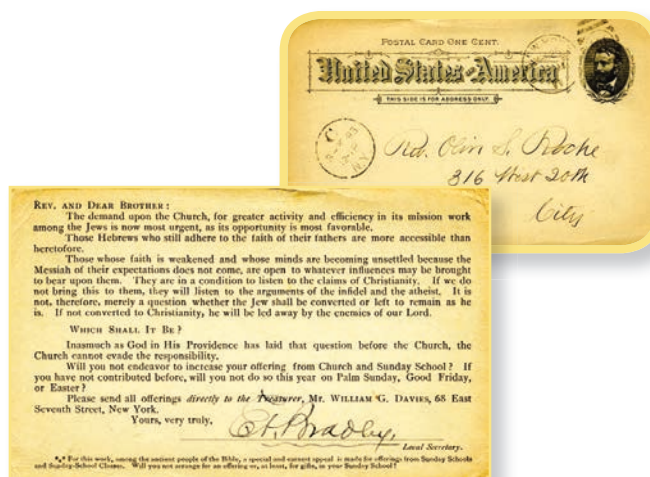 POSTAL CARD ONE CENT.
United States of America
THIS SIDE IS FOR ADDRESS ONLY.
C
93
N.Y.
Rev. Olin S. Roche
316 West 20th
City
REV. AND DEAR BROTHER:
The demand upon the Church, for greater activity and efficiency in its mission work
among the Jews is now most urgent, as its opportunity is most favorable.
Those Hebrews who still adhere to the faith of their fathers are more accessible than
heretofore.
Those whose faith is weakened and whose minds are becoming unsettled because the
Messiah of their expectations does not come, are open to whatever influences may be brought
to bear upon them. They are in a condition to listen to the claims of Christianity. If we do
not bring this to them, they will listen to the arguments of the infidel and the atheist. It is
not, therefore, merely a question whether the Jew shall be converted or left to remain as he
is. If not converted to Christianity, he will be led away by the enemies of our Lord.
WHICH SHALL IT BE?
Inasmuch as God in His Providence has laid that question before the Church, the
Church cannot evade the responsibility.
Will you not endeavor to increase your offering from Church and Sunday School? If
you have not contributed before, will you not do so this year on Palm Sunday, Good Friday,
or Easter?
Please send all offerings directly to the Treasurer, MR. WILLIAM G. DAVIES, 68 East
Seventh Street, New York.
Yours, very truly,
Bradley,
Local Secretary.
*** For this work, among the ancient people of the Bible, a special and earnest appeal is made for offerings from Sunday Schools
and Sunday-School Classes. Will you not arrange for an offering or, at least, for gifts, in your Sunday School?